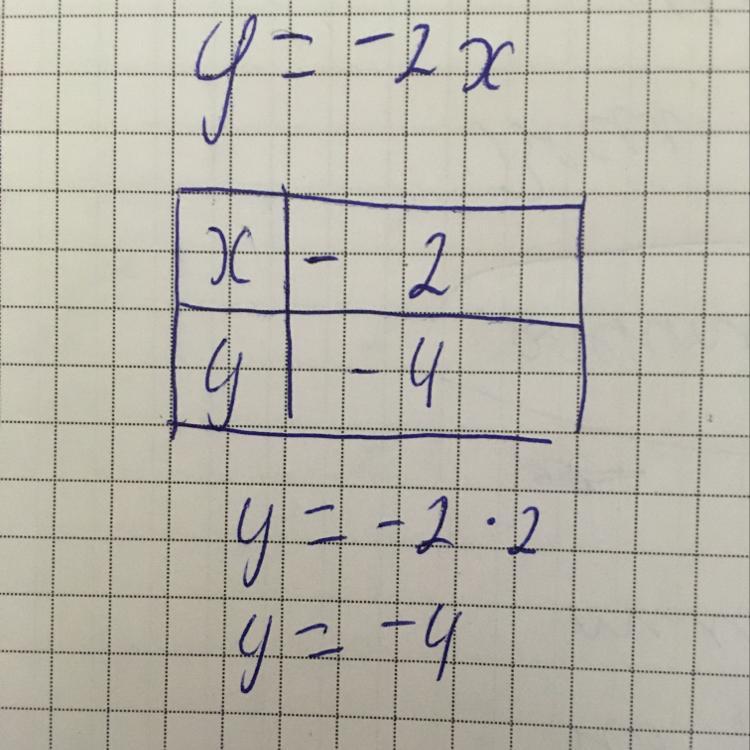 y = -2x
x - 2
y - 4
y = -2 · 2
y = -4